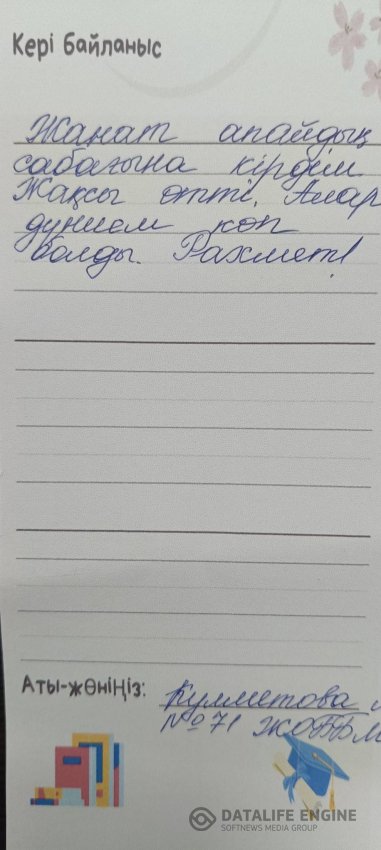 Кері байланыс
Жанат апайдың
сабағына кірдім
Жақсы өтті. Алар
дүнием көп
болды. Рахмет!
Аты-жөніңіз:
Кулметова
№71 ЖОББМ
DATALIFE ENGINE
SOFTNEWS MEDIA GROUP